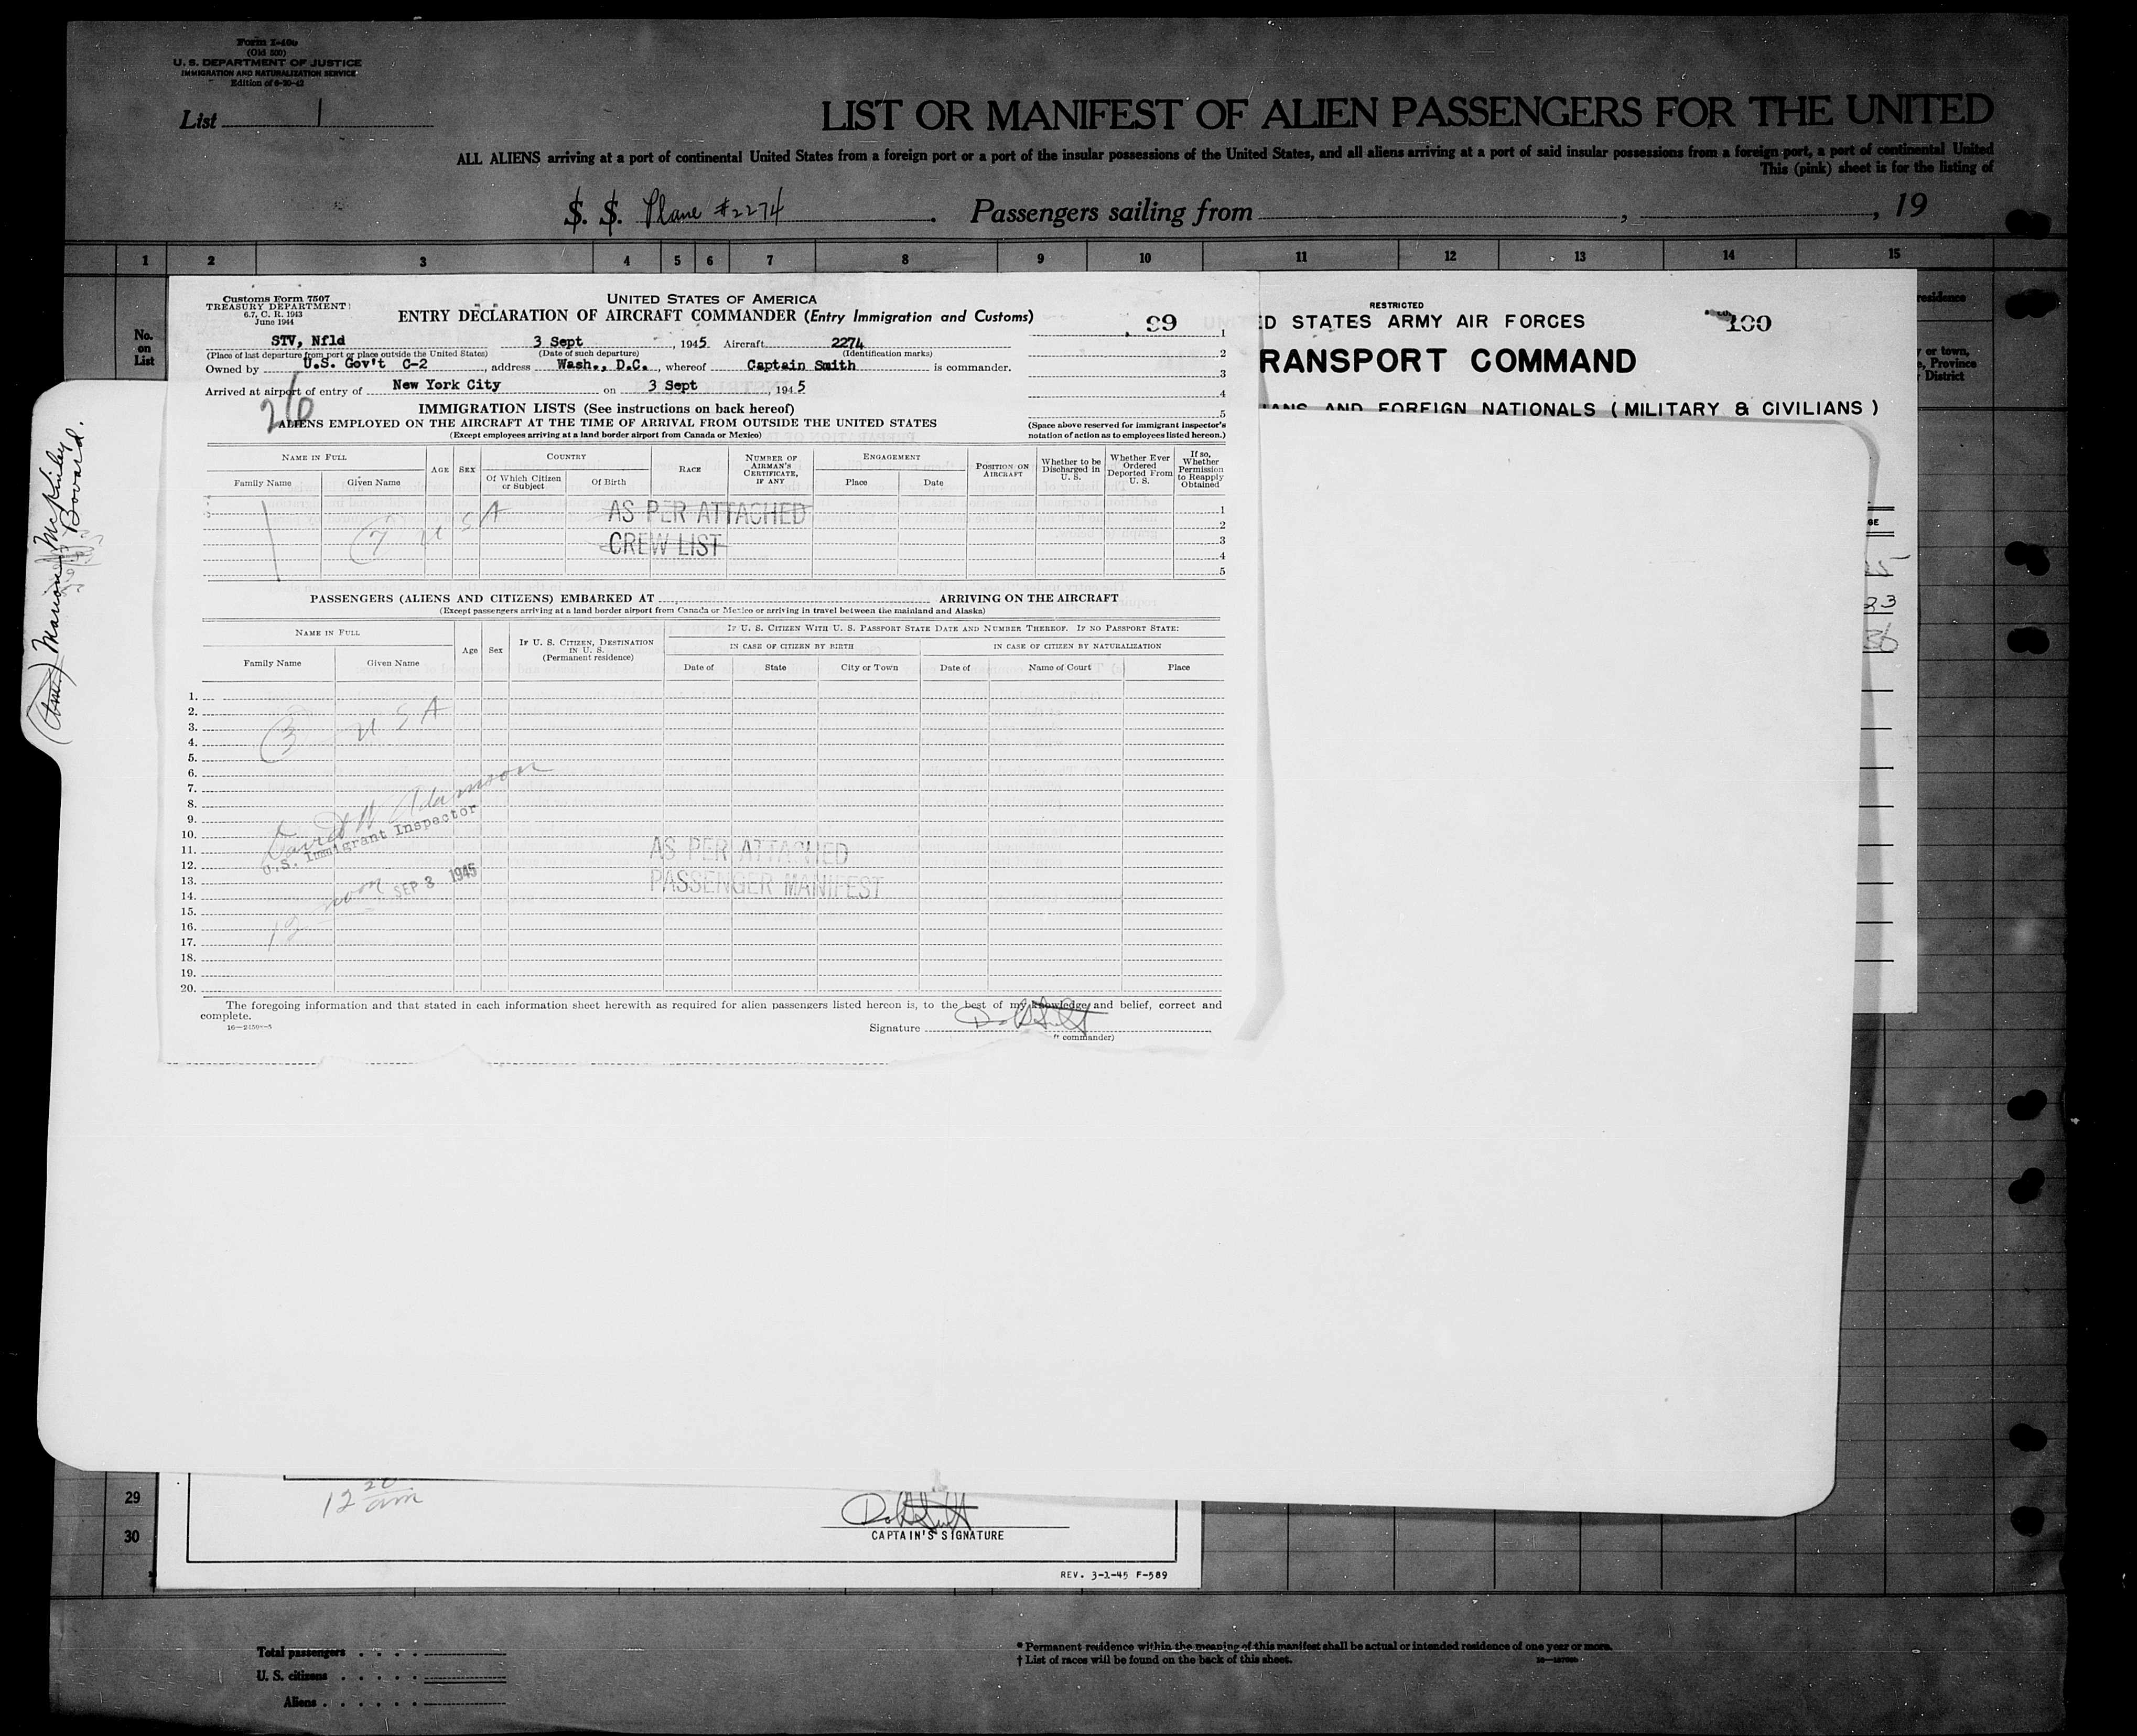 Form I-40b
(Old 500)
U. S. DEPARTMENT OF JUSTICE
IMMIGRATION AND NATURALIZATION SERVICE
Edition of 6-20-42
List 1
LIST OR MANIFEST OF ALIEN PASSENGERS FOR THE UNITED
ALL ALIENS arriving at a port of continental United States from a foreign port or a port of the insular possessions of the United States, and all aliens arriving at a port of said insular possessions from a foreign port, a port of continental United
This (pink) sheet is for the listing of
S. S. Plane #2274 . Passengers sailing from , , 19
1 2 3 4 5 6 7 8 9 10 11 12 13 14 15
No.
on
List
residence
or town,
Province
District
RESTRICTED
ED STATES ARMY AIR FORCES
100
RANSPORT COMMAND
IANS AND FOREIGN NATIONALS ( MILITARY & CIVILIANS )
GE
33
Customs Form 7507
TREASURY DEPARTMENT
6.7, C. R. 1943
June 1944
UNITED STATES OF AMERICA
ENTRY DECLARATION OF AIRCRAFT COMMANDER (Entry Immigration and Customs)
99
STV, Nfld 3 Sept , 1945. Aircraft 2274
(Place of last departure from port or place outside the United States) (Date of such departure) (Identification marks)
Owned by U.S. Gov't C-2 , address Wash., D.C. , whereof Captain Smith is commander.
Arrived at airport of entry of New York City on 3 Sept , 1945
1
2
3
4
5
26
IMMIGRATION LISTS (See instructions on back hereof)
ALIENS EMPLOYED ON THE AIRCRAFT AT THE TIME OF ARRIVAL FROM OUTSIDE THE UNITED STATES
(Except employees arriving at a land border airport from Canada or Mexico)
(Space above reserved for immigrant inspector's
notation of action as to employees listed hereon.)
NAME IN FULL
Family Name Given Name
AGE SEX
COUNTRY
Of Which Citizen or Subject Of Birth
RACE
NUMBER OF AIRMAN'S CERTIFICATE, IF ANY
ENGAGEMENT
Place Date
POSITION ON AIRCRAFT
Whether to be Discharged in U. S.
Whether Ever Ordered Deported From U. S.
If so, Whether Permission to Reapply Obtained
7 U S A
AS PER ATTACHED
CREW LIST
1
2
3
4
5
PASSENGERS (ALIENS AND CITIZENS) EMBARKED AT ARRIVING ON THE AIRCRAFT
(Except passengers arriving at a land border airport from Canada or Mexico or arriving in travel between the mainland and Alaska)
NAME IN FULL
Family Name Given Name
Age Sex
IF U. S. CITIZEN, DESTINATION IN U. S.
(Permanent residence)
IF U. S. CITIZEN WITH U. S. PASSPORT STATE DATE AND NUMBER THEREOF. IF NO PASSPORT STATE:
IN CASE OF CITIZEN BY BIRTH IN CASE OF CITIZEN BY NATURALIZATION
Date of State City or Town Date of Name of Court Place
1.
2.
3.
4.
5.
6.
7.
8.
9.
10.
11.
12.
13.
14.
15.
16.
17.
18.
19.
20.
3 U S A
David H Adamson
U.S. Immigrant Inspector
12 noon SEP 3 1945
AS PER ATTACHED
PASSENGER MANIFEST
The foregoing information and that stated in each information sheet herewith as required for alien passengers listed hereon is, to the best of my knowledge and belief, correct and
complete.
16—2450
Signature
commander)
Marion McKinley
Bovard.
29
30
12 20 am
CAPTAIN'S SIGNATURE
REV. 3-1-45 F-589
Total passengers
U. S. citizens
Aliens
* Permanent residence within the meaning of this manifest shall be actual or intended residence of one year or more.
† List of races will be found on the back of this sheet.